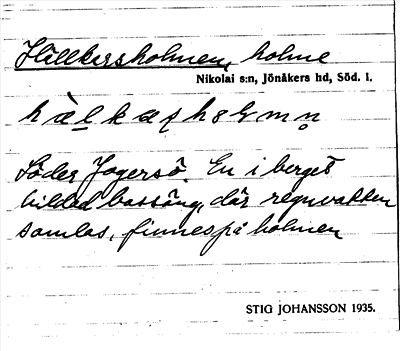 Hällkarsholmen, holme
Nikolai s:n, Jönåkers hd, Söd. l.
Söder Jogersö. En i berget
bildad bassäng, där regnvatten
samlas, finnes på holmen
STIG JOHANSSON 1935.